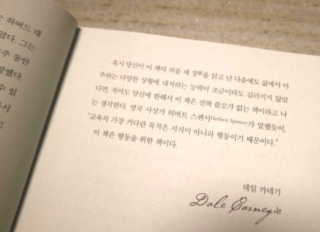 는 하버드 대
랐다. 그는
주 동안
혹시 당신이 이 책의 처음 세 장을 읽고 난 다음에도 삶에서 마
주하는 다양한 상황에 대처하는 능력이 조금이라도 길러지지 않았
다면, 적어도 당신에 한해서 이 책은 전혀 쓸모가 없는 책이라고 나
는 생각한다. 영국 사상가 허버트 스펜서Herbert Spencer가 말했듯이,
"교육의 가장 커다란 목적은 지식이 아니라 행동이기 때문이다."
이 책은 행동을 위한 책이다.
데일 카네기
Dale Carnegie